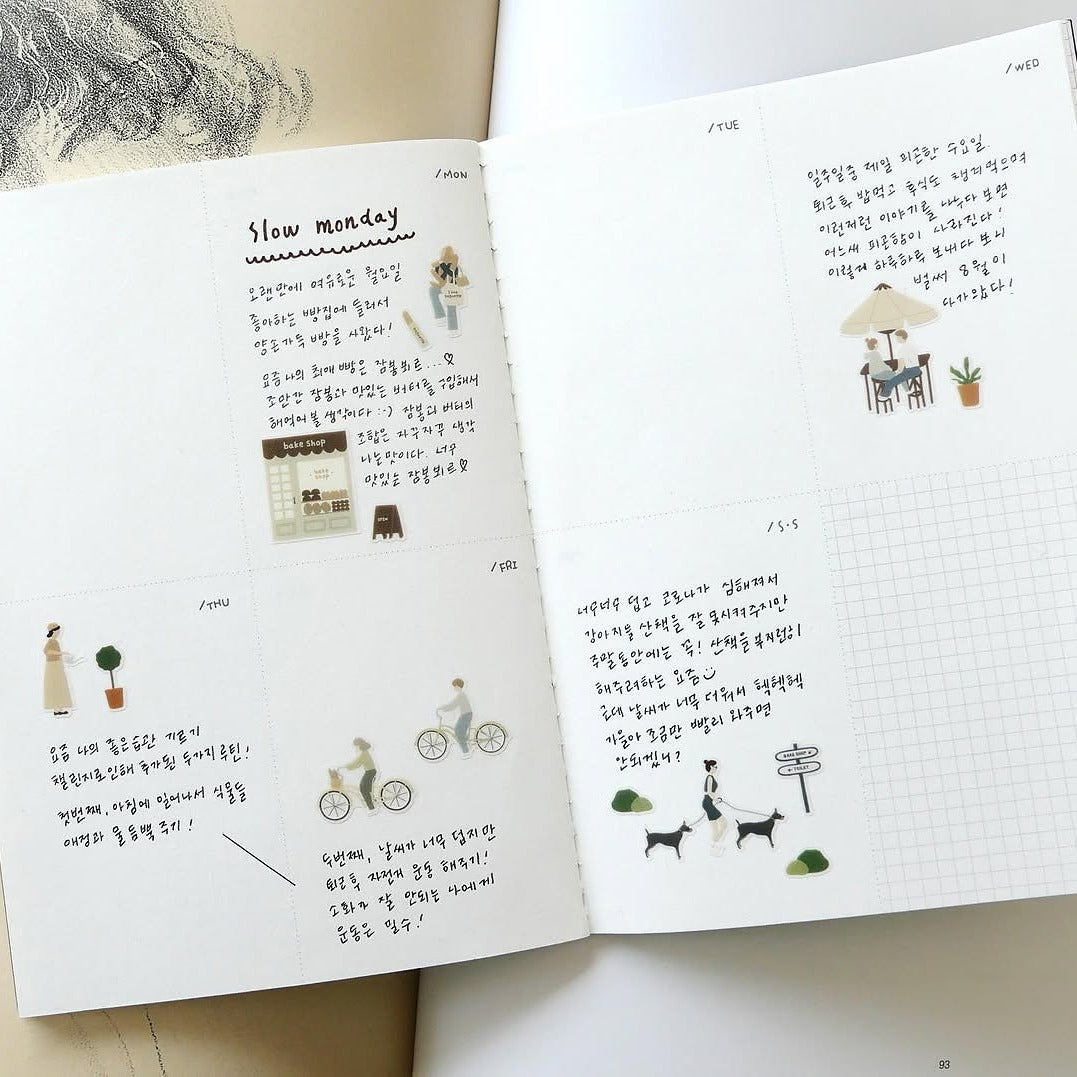 /MON
Slow monday
오랜만에 여유로운 월요일
좋아하는 빵집에 들러서
양손가득 빵을 사왔다!
요즘 나의 최애 빵은 잠봉뵈르...♡
조만간 잠봉과 맛있는 버터를 구입해서
해먹어볼 생각이다 :-) 잠봉과 버터의
조합은 자꾸자꾸 생각
나는 맛이다. 너무
맛있는 잠봉뵈르♡
bake shop
bake
shop
OPEN
/TUE
/WED
일주일중 제일 피곤한 수요일.
퇴근후 밥먹고 후식도 챙겨먹으며
이런저런 이야기를 나누다 보면
어느새 피곤함이 사라진다!
이렇게 하루하루 보내다 보니
벌써 8월이
다가왔다!
/THU
요즘 나의 좋은습관 기르기
챌린지로인해 추가된 두가지 루틴!
첫번째, 아침에 일어나서 식물들
애정과 물 듬뿍 주기!
/FRI
두번째, 날씨가 너무 덥지만
퇴근후 자전거 운동 해주기!
소화가 잘 안되는 나에게
운동은 필수!
/S·S
너무너무 덥고 코로나가 심해져서
강아지들 산책을 잘 못시켜주지만
주말동안에는 꼭! 산책을 부지런히
해주려하는 요즘
근데 날씨가 너무 더워서 헥헥헥
가을아 조금만 빨리 와주면
안되겠니?
BAKE SHOP
TOILET
93